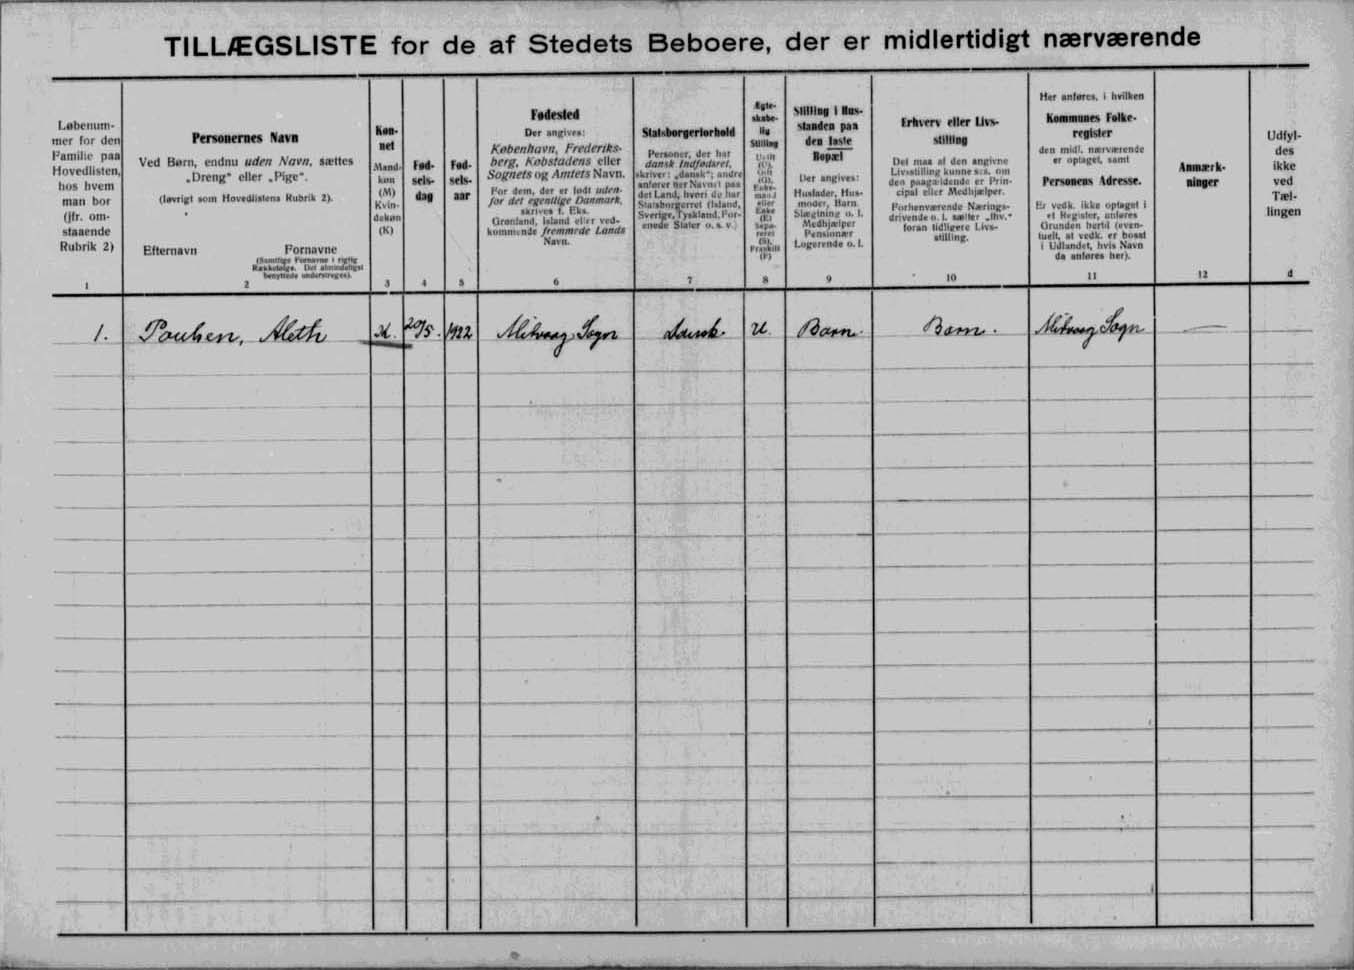 TILLÆGSLISTE for de af Stedets Beboere, der er midlertidigt nærværende
Løbenum-
mer for den
Familie paa
Hovedlisten,
hos hvem
man bor
(jfr. om-
staaende
Rubrik 2)
1
Personernes Navn
Ved Børn, endnu uden Navn, sættes
„Dreng" eller „Pige".
(Iøvrigt som Hovedlistens Rubrik 2).
Efternavn Fornavne
(Samtlige Fornavne i rigtig
Rækkefølge. Det almindeligst
benyttede understreges).
2
Køn-
net
Mand-
køn
(M)
Kvin-
dekøn
(K)
3
Fød-
sels-
dag
4
Fød-
sels-
aar
5
Fødested
Der angives:
København, Frederiks-
berg, Købstadens eller
Sognets og Amtets Navn.
For dem, der er født uden-
for det egentlige Danmark,
skrives f. Eks.
Grønland, Island eller ved-
kommende fremmede Lands
Navn.
6
Statsborgerforhold
Personer, der har
dansk Indfødsret,
skriver: „dansk"; andre
anfører her Navnet paa
det Land, hvori de har
Statsborgerret (Island,
Sverige, Tyskland, For-
enede Stater o. s. v.)
7
Ægte-
skabe-
lig
Stilling
Ugift
(U),
Gift
(G),
Enke-
mand
eller
Enke
(E)
Sepa-
reret
(S),
Fraskilt
(F)
8
Stilling i Hus-
standen paa
den faste
Bopæl
Der angives:
Husfader, Hus-
moder, Barn,
Slægtning o. l.
Medhjælper
Pensionær
Logerende o. l.
9
Erhverv eller Livs-
stilling
Det maa af den angivne
Livsstilling kunne ses, om
den paagældende er Prin-
cipal eller Medhjælper.
Forhenværende Nærings-
drivende o. l. sætter „fhv."
foran tidligere Livs-
stilling.
10
Her anføres, i hvilken
Kommunes Folke-
register
den midl. nærværende
er optaget, samt
Personens Adresse.
Er vedk. ikke optaget i
et Register, anføres
Grunden hertil (even-
tuelt, at vedk. er bosat
i Udlandet, hvis Navn
da anføres her).
11
Anmærk-
ninger
12
Udfyl-
des
ikke
ved
Tæl-
lingen
d
1. Poulsen, Aleth K. 20/5. 1922 Mitvaag Sogn Dansk. U. Barn. Barn. Mitvaag Sogn —